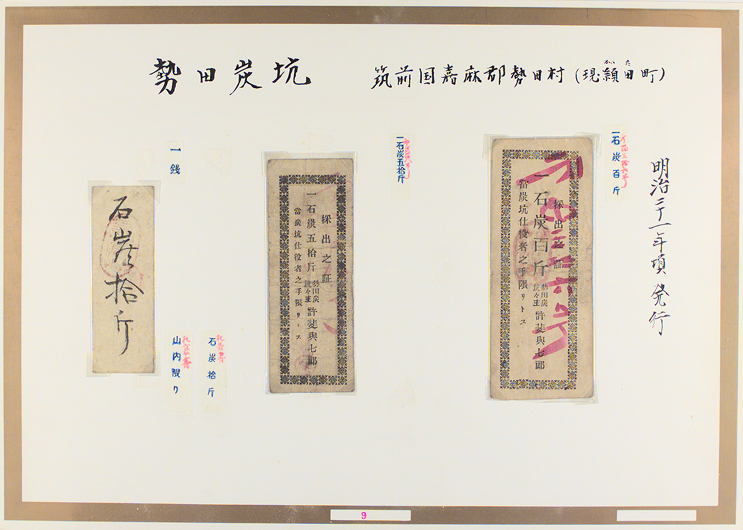 勢田炭坑
筑前国嘉麻郡勢田村(現頴田町)
かいた
明治三十一年頃発行
一石炭百斤
採出之証
一石炭百斤
勢田炭
許斐與七郎
當炭坑仕役者之手限リトス
一石炭五拾斤
採出之証
一石炭五拾斤
勢田炭
許斐與七郎
當炭坑仕役者之手限リトス
一銭
石炭拾斤
山内限り
石炭拾斤
9